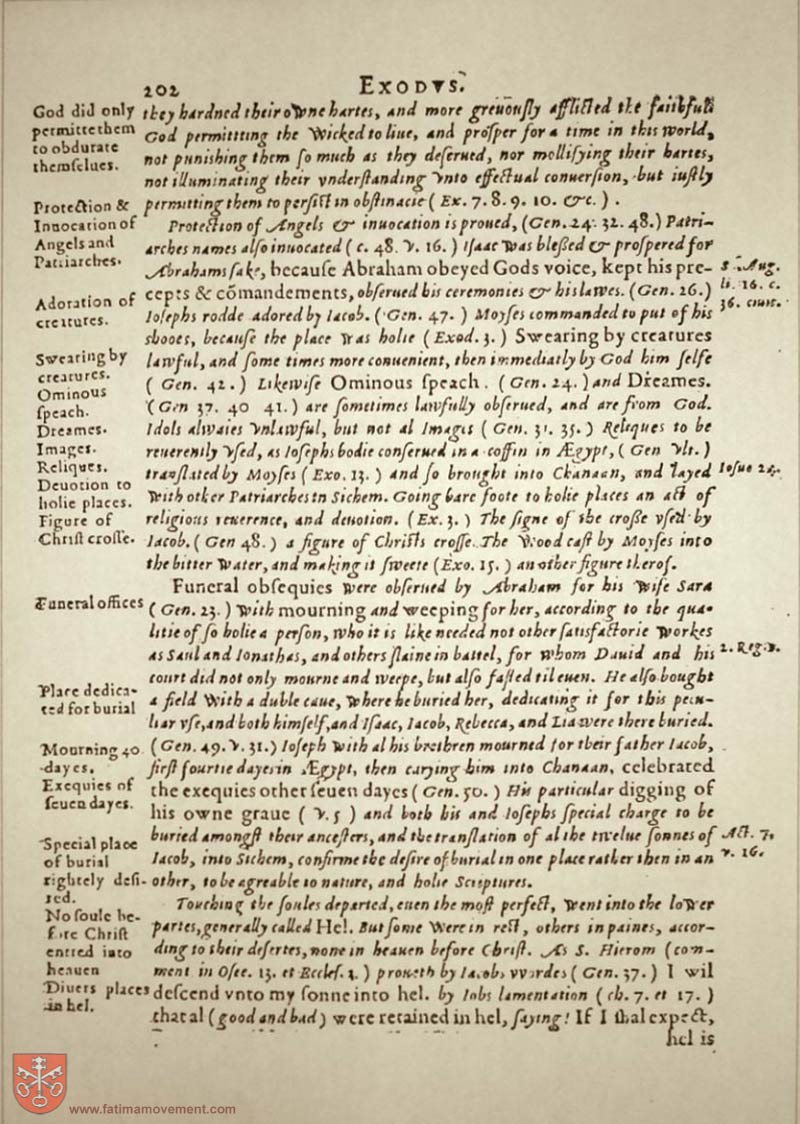 202
EXODVS.
God did only
permitte them
to obdurate
themſelues.
Protection &
Inuocation of
Angels and
Patriarches.
Adoration of
creatures.
Swearing by
creatures.
Ominous
ſpeach.
Dreames.
Images.
Reliques.
Deuotion to
holie places.
Figure of
Chriſt croſſe.
Funeral offices
Place dedica-
ted for burial
Mourning 40
dayes.
Exequies of
ſeuen dayes.
Special place
of burial
rightely deſi-
red.
No ſoule be-
fore Chriſt
entred into
heauen
Diuers places
in hel.
they hardned their owne hartes, and more greuouſly afflicted the faithful:
God permittting the wicked to liue, and proſper for a time in this world,
not puniſhing them ſo much as they deſerued, nor mollifying their hartes,
not illuminating their vnderſtanding vnto effectual conuerſion, but iuſtly
permitting them to perſiſt in obſtinacie (Ex. 7. 8. 9. 10. &c.) .
Protection of Angels & inuocation is proued, (Gen. 24. 32. 48.) Patri-
arches names alſo inuocated (c. 48. v. 16.) Iſaac was bleſſed & proſpered for
Abrahams ſake, becauſe Abraham obeyed Gods voice, kept his pre-
cepts & cõmandements, obſerued his ceremonies & his lawes. (Gen. 26.)
Ioſephs rodde adored by Iacob. (Gen. 47.) Moyſes commanded to put of his
shooes, becauſe the place was holie (Exod. 3.) Swearing by creatures
lawful, and ſome times more conuenient, then immediatly by God him ſelfe
(Gen. 42.) Likewiſe Ominous ſpeach. (Gen. 24.) and Dreames.
(Gen 37. 40 41.) are ſometimes lawfully obſerued, and are from God.
Idols alwaies vnlawful, but not al Images (Gen. 31. 35.) Reliques to be
reuerently vſed, as Ioſephs bodie conſerued in a coffin in Ægypt, (Gen vlt.)
tranſlated by Moyſes (Exo. 13.) and ſo brought into Chanaan, and layed
with other Patriarches in Sichem. Going bare foote to holie places an act of
religious reuerence, and deuotion. (Ex. 3.) The ſigne of the croſſe vſed by
Iacob. (Gen 48.) a figure of Chriſts croſſe. The wood caſt by Moyſes into
the bitter water, and making it ſweete (Exo. 15.) another figure therof.
Funeral obſequies were obſerued by Abraham for his wife Sara
(Gen. 23.) with mourning and weeping for her, according to the qua-
litie of ſo holie a perſon, who it is like needed not other ſatisfactorie workes
as Saul and Ionathas, and others ſlaine in battel, for whom Dauid and his
court did not only mourne and weepe, but alſo faſted til euen. He alſo bought
a field with a duble caue, where he buried her, dedicating it for this pecu-
liar vſe, and both himſelf, and Iſaac, Iacob, Rebecca, and Lia were there buried.
(Gen. 49. v. 31.) Ioſeph with al his brethren mourned for their father Iacob,
firſt fourtie dayes in Ægypt, then carying him into Chanaan, celebrated
the exequies other ſeuen dayes (Gen. 50.) His particular digging of
his owne graue (v. 5) and both his and Ioſephs ſpecial charge to be
buried amongſt their anceſters, and the tranſlation of al the twelue ſonnes of
Iacob, into Sichem, confirme the deſire of burial in one place rather then in an
other, to be agreable to nature, and holie Scriptures.
Touching the ſoules departed, euen the moſt perfect, went into the lower
partes, generally called Hel. But ſome were in reſt, others in paines, accor-
ding to their deſertes, none in heauen before Chriſt. As S. Hierom (com-
ment in Oſee. 13. et Eccleſ. 3.) proueth by Iacobs wordes (Gen. 37.) I wil
deſcend vnto my ſonne into hel. by Iobs lamentation (ch. 7. et 17.)
that al (good and bad) were retained in hel, ſaying! If I ſhal expect,
hel is
S. Aug.
li. 16. c.
36. ciuit.
Ioſue 24.
2. Reg. 1.
Act. 7.
v. 16.
www.fatimamovement.com